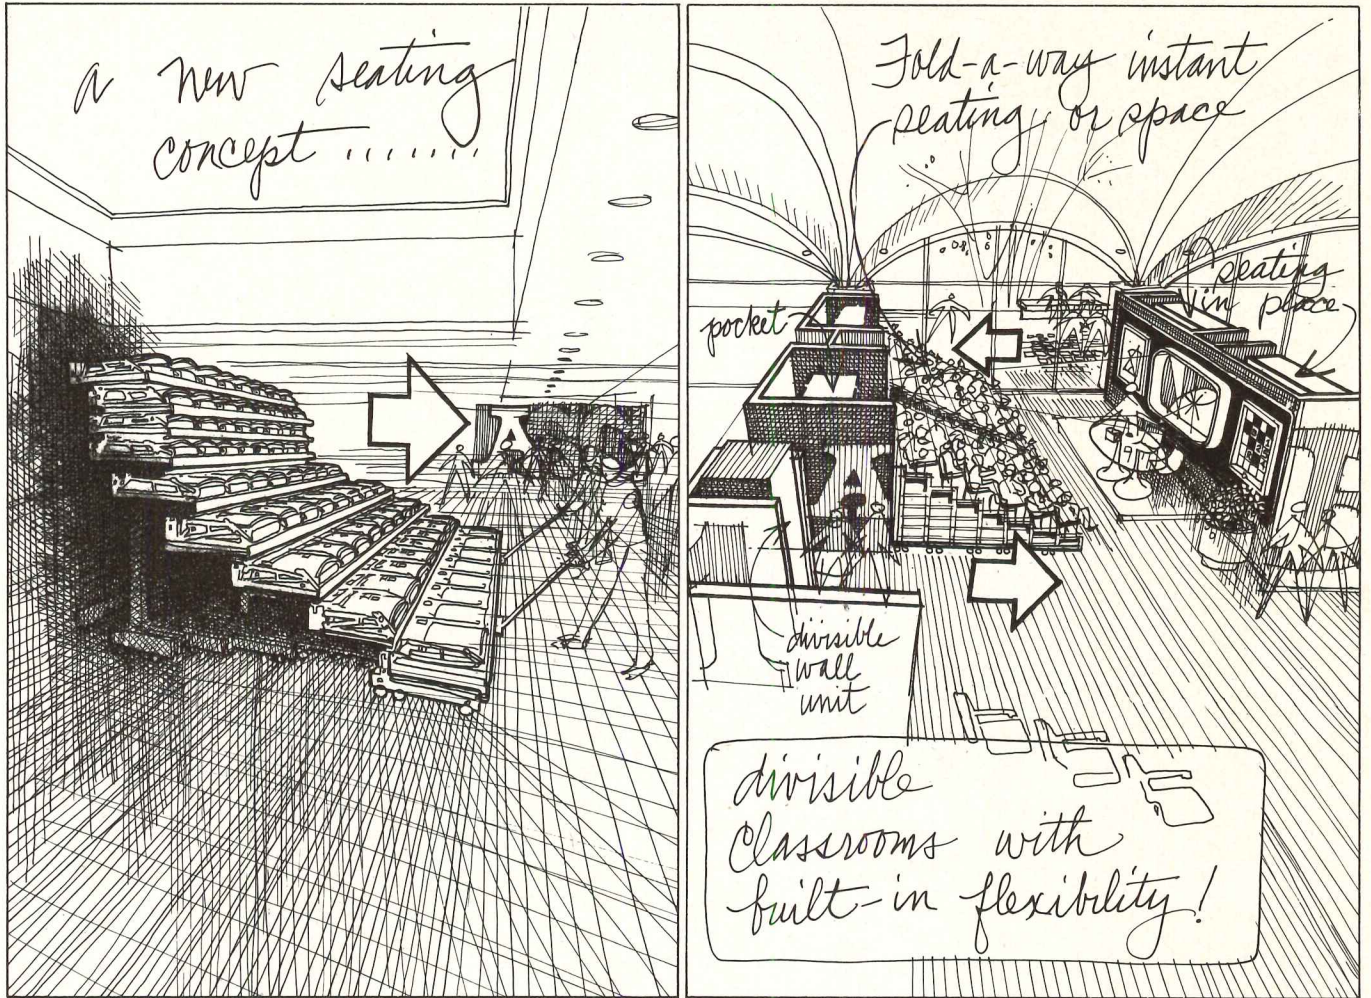 a new seating
concept .......
Fold-a-way instant
seating or space
pocket
seating
in place
A
A
divisible
wall
unit
divisible
classrooms with
built-in flexibility!